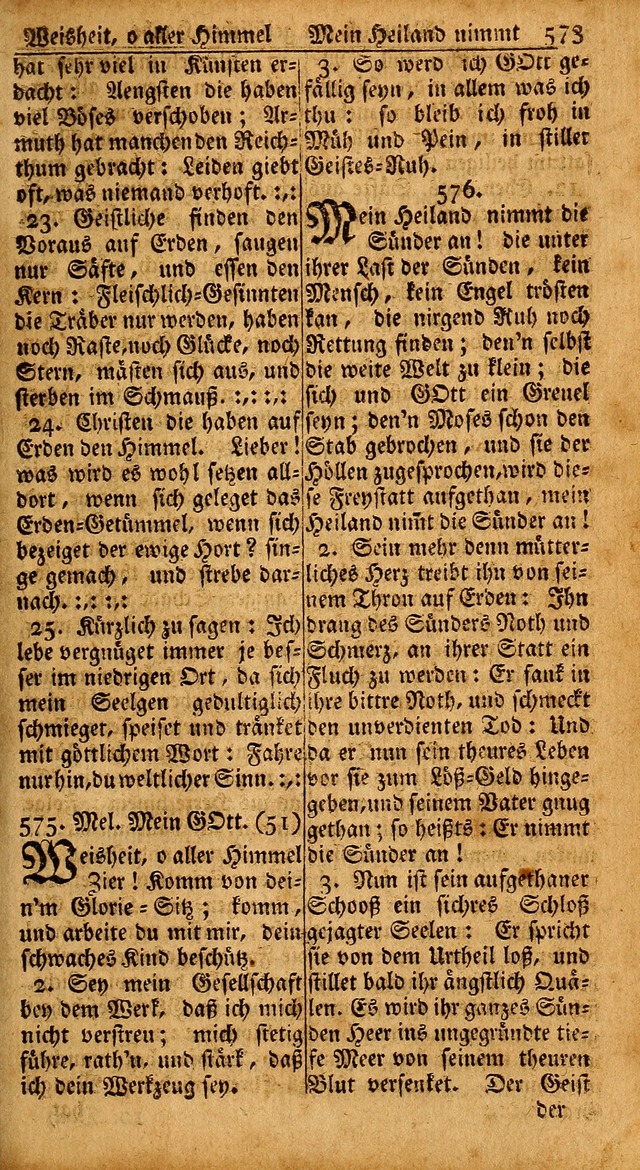 Weisheit, o aller Himmel Mein Heiland nimmt 573
hat sehr viel in Künsten er-
dacht: Aengsten die haben
viel Böses verschoben; Ar-
muth hat manchen den Reich-
thum gebracht: Leiden giebt
oft, was niemand verhoft. :,:
23. Geistliche finden den
Voraus auf Erden, saugen
nur Säfte, und essen den
Kern: Fleischlich-Gesinnten
die Träber nur werden, haben
noch Raste, noch Glücke, noch
Stern, mästen sich aus, und
sterben im Schmauß. :,: :,:
24. Christen die haben auf
Erden den Himmel. Lieber!
was wird es wohl setzen all-
dort, wenn sich geleget das
Erden-Getümmel, wenn sich
bezeiget der ewige Hort? sin-
ge gemach, und strebe dar-
nach. :,: :,:
25. Kürzlich zu sagen: Ich
lebe vergnüget immer je bes-
ser im niedrigen Ort, da sich
mein Seelgen gedultiglich
schmieget, speiset und tränket
mit göttlichem Wort: Fahre
nur hin, du weltlicher Sinn. :,:
575. Mel. Mein GOtt. (51)
Weisheit, o aller Himmel
Zier! Komm von dei-
n'm Glorie-Sitz; komm,
und arbeite du mit mir, dein
schwaches Kind beschütz.
2. Sey mein Gesellschaft
bey dem Werk, daß ich mich
nicht verstreu; mich stetig
führe, rath'n, und stärk, daß
ich dein Werkzeug sey.
3. So werd ich GOtt ge-
fällig seyn, in allem was ich
thu: so bleib ich froh in
Müh und Pein, in stiller
Geistes-Ruh.
576.
Mein Heiland nimmt die
Sünder an! die unter
ihrer Last der Sünden, kein
Mensch, kein Engel trösten
kan, die nirgend Ruh noch
Rettung finden; den'n selbst
die weite Welt zu klein; die
sich und GOtt ein Greuel
seyn; den'n Moses schon den
Stab gebrochen, und sie der
Höllen zugesprochen, wird die-
se Freystatt aufgethan, mein
Heiland nim̄t die Sünder an!
2. Sein mehr denn mütter-
liches Herz treibt ihn von sei-
nem Thron auf Erden: Ihn
drang des Sünders Noth und
Schmerz, an ihrer Statt ein
Fluch zu werden: Er sank in
ihre bittre Noth, und schmeckt
den unverdienten Tod: Und
da er nun sein theures Leben
vor sie zum Löß-Geld hinge-
geben, und seinem Vater gnug
gethan; so heißts: Er nimmt
die Sünder an!
3. Nun ist sein aufgethaner
Schooß ein sichres Schloß
gejagter Seelen: Er spricht
sie von dem Urtheil loß, und
stillet bald ihr ängstlich Quä-
len. Es wird ihr ganzes Sün-
den Heer ins ungegründte tie-
fe Meer von seinem theuren
Blut versenket. Der Geist
der